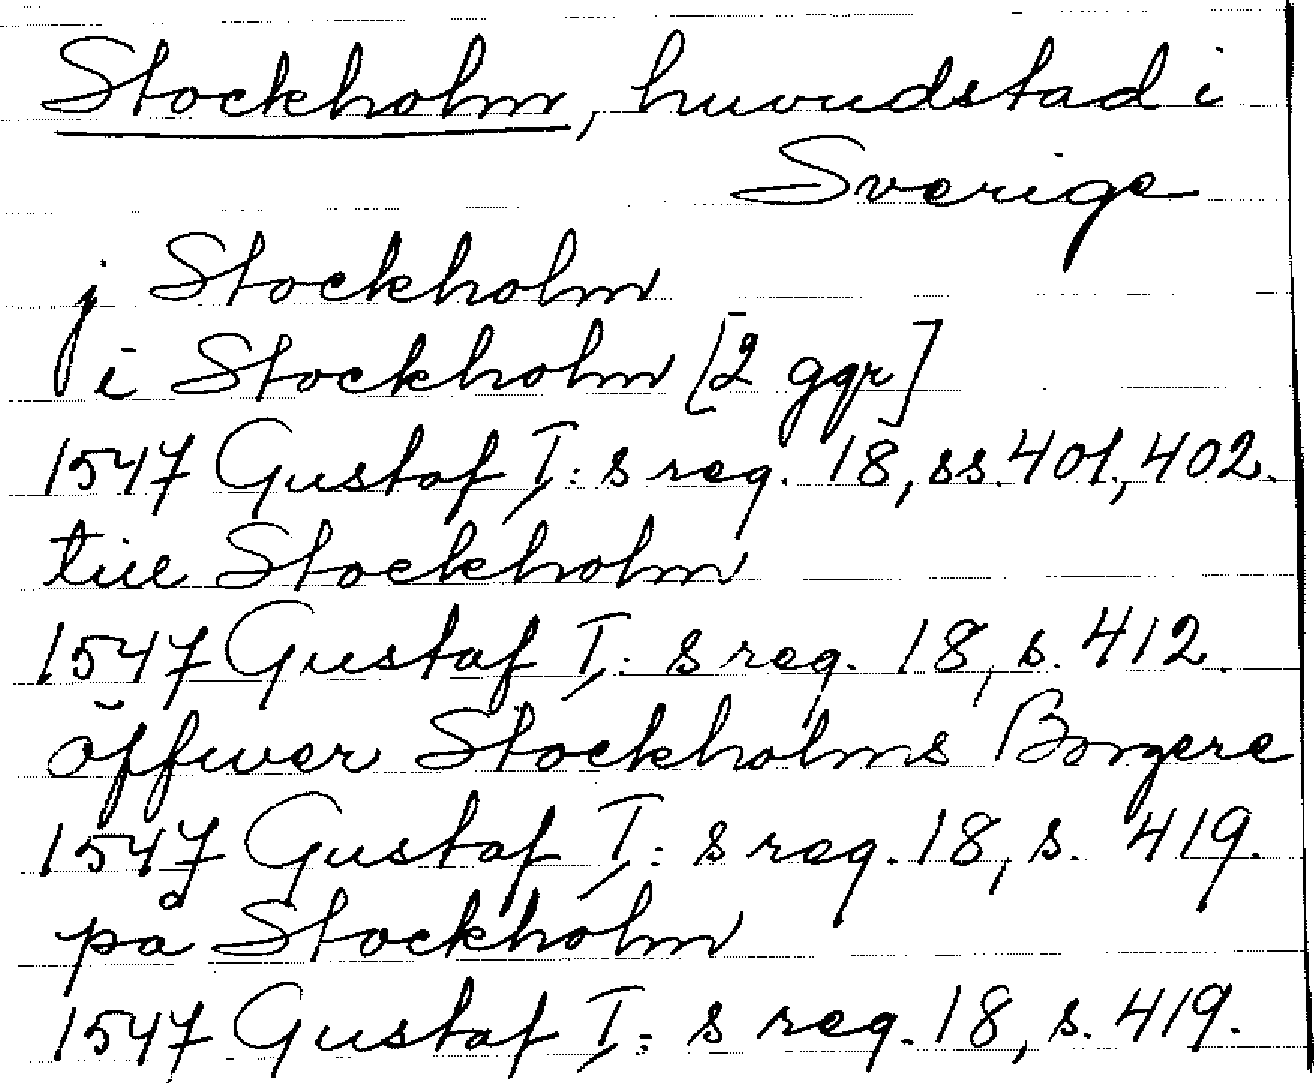 Stockholm, huvudstad i
Sverige
j Stockholm
i Stockholm [2 ggr]
1547 Gustaf I:s reg. 18, ss. 401, 402.
till Stockholm
1547 Gustaf I:s reg. 18, s. 412.
öffwer Stockholms Borgere
1547 Gustaf I:s reg. 18, s. 419.
på Stockholm
1547 Gustaf I:s reg. 18, s. 419.